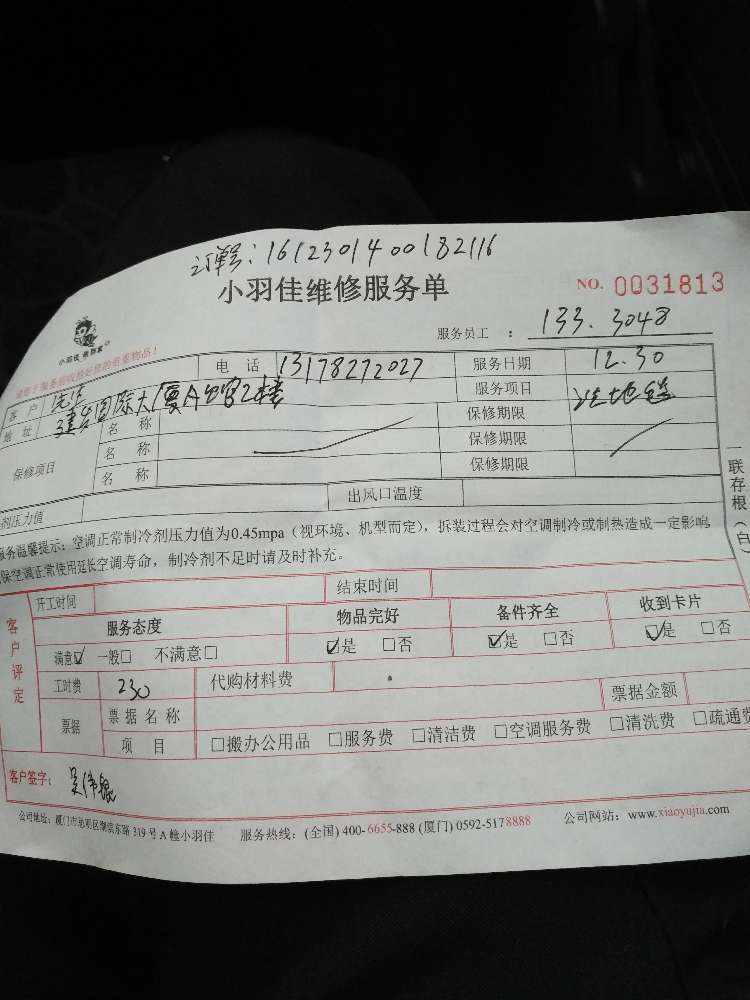 订单号：161230140018 2116
小羽佳维修服务单 NO. 0031813
小羽佳 爱到家
服务员工 ： 133. 3048
请您于服务前收拾好您的贵重物品！
客户 电话 13178272027 服务日期 12.30
地址 国际大厦A 2楼 服务项目 洗地毯
保修项目 名称 保修期限
名称 保修期限
名称 保修期限
剂压力值 出风口温度
服务温馨提示：空调正常制冷剂压力值为0.45mpa（视环境、机型而定），拆装过程会对空调制冷或制热造成一定影响
保空调正常使用延长空调寿命，制冷剂不足时请及时补充。
一联存根（白）
开工时间 结束时间
客户评定 服务态度 物品完好 备件齐全 收到卡片
满意☑ 一般□ 不满意□ ☑是 □否 ☑是 □否 ☑是 □否
工时费 230 代购材料费
票据 票据名称 票据金额
项目 □搬办公用品 □服务费 □清洁费 □空调服务费 □清洗费 □疏通费
客户签字： 吴伟银
公司地址：厦门市思明区湖滨东路319号A幢小羽佳 服务热线：(全国) 400-6655-888 (厦门) 0592-5178888 公司网站：www.xiaoyujia.com